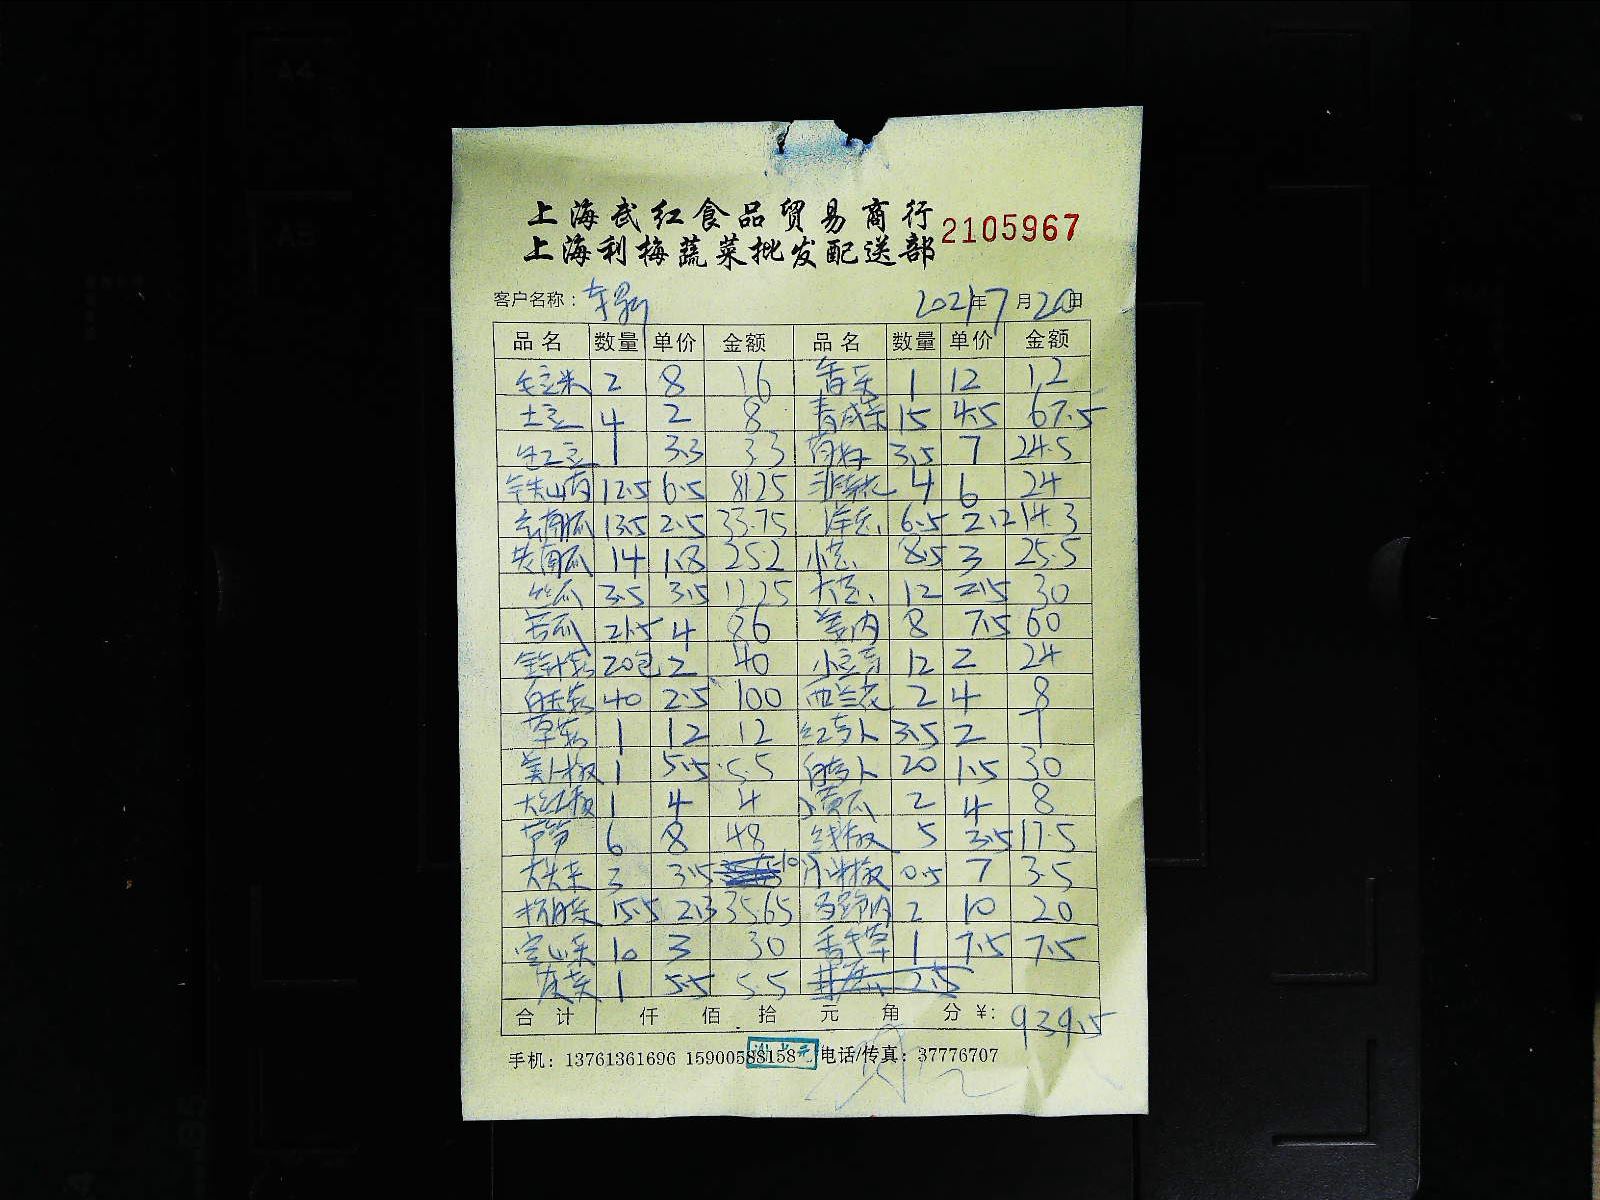 上海武红食品贸易商行
上海利梅蔬菜批发配送部 2105967
客户名称： 2021年7月20日
品名 数量 单价 金额 品名 数量 单价 金额
毛豆米 2 8 16 香菜 1 12 12
土豆 4 2 8 15 4.5 67.5
1 3.3 3.3 3.5 7 24.5
铁山药 12.5 6.5 81.25 韭菜花 4 6 24
南瓜 13.5 2.5 33.75 洋葱 6.5 2.2 14.3
老南瓜 14 1.8 25.2 小葱 8.5 3 25.5
丝瓜 3.5 3.5 12.25 大葱 12 2.5 30
苦瓜 21.5 4 86 姜肉 8 7.5 60
金针菇 20包 2 40 小豆芽 12 2 24
白玉菇 40 2.5 100 西兰花 2 4 8
草菇 1 12 12 红萝卜 3.5 2 7
美人椒 1 5.5 5.5 白萝卜 20 1.5 30
大红椒 1 4 4 黄瓜 2 4 8
芦笋 6 8 48 线椒 5 3.5 17.5
大头菜 3 3.5 10.5 小米椒 0.5 7 3.5
15.5 2.3 35.65 马蹄肉 2 10 20
10 3 30 香茅草 1 7.5 7.5
1 5.5 5.5 2.5
合计 仟 佰 拾 元 角 分 ¥: 939.5
手机：13761361696 15900588158 电话/传真：37776707